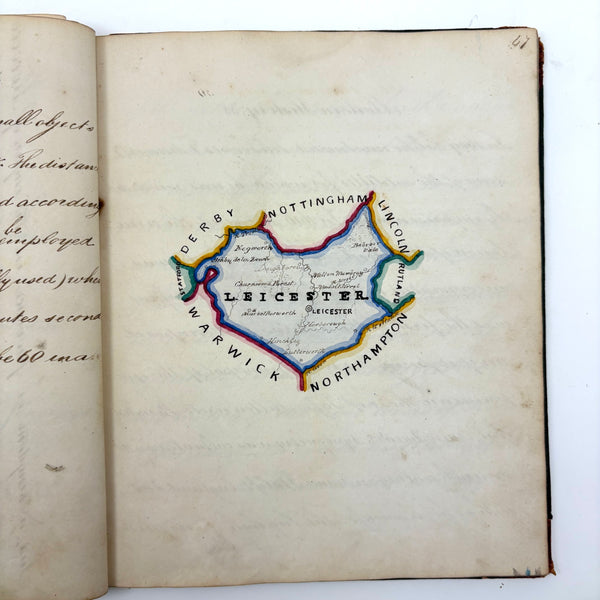 mall objects
The distan
d according
be
employed
ly used) whe
utes secona
be 60 in a
47
DERBY
NOTTINGHAM
LINCOLN
RUTLAND
NORTHAMPTON
WARWICK
STAFFORD
Kegworth
Ashby de la Zouch
Charnwood Forest
Melton Mowbray
LEICESTER
LEICESTER
Market Bosworth
Harborough
Hinckley
Lutterworth